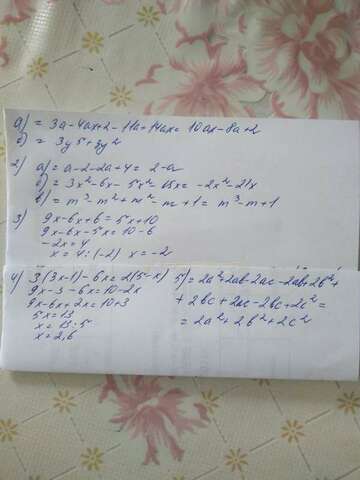 а) = 3а-4ах+2-11а+14ах = 10ах-8а+2
б) = 3y⁵+3y²
2) а) = а-2-2а+4 = 2-а
б) = 3x²-6x-5x²-15x = -2x²-21x
в) = m³-m²+m²-m+1 = m³-m+1
3) 9x-6x+6 = 5x+10
9x-6x-5x = 10-6
-2x=4
x = 4:(-2) x = -2
4) 3(3x-1)-6x=2(5-x)
9x-3-6x=10-2x
9x-6x+2x=10+3
5x=13
x=13:5
x=2,6
5) = 2a²+2ab-2ac-2ab+2b²+
+2bc+2ac-2bc+2c² =
= 2a²+2b²+2c²